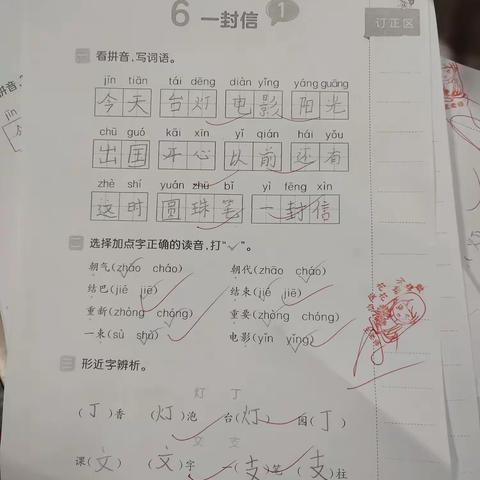 6 一封信 1
订正区
一 看拼音,写词语。
jīn tiān tái dēng diàn yǐng yáng guāng
今天 台灯 电影 阳光
chū guó kāi xīn yǐ qián hái yǒu
出国 开心 以前 还有
zhè shí yuán zhū bǐ yì fēng xìn
这时 圆珠笔 一封信
二 选择加点字正确的读音,打“✓”。
朝气(zhāo cháo) 朝代(zhāo cháo)
结巴(jié jiē) 结束(jié jiē)
重新(zhòng chóng) 重要(zhòng chóng)
一束(sù shù) 电影(yǐn yǐng)
三 形近字辨析。
灯 丁
(丁)香 (灯)泡 台(灯) 园(丁)
文 支
课(文) (文)字 一(支)笔 (支)柱